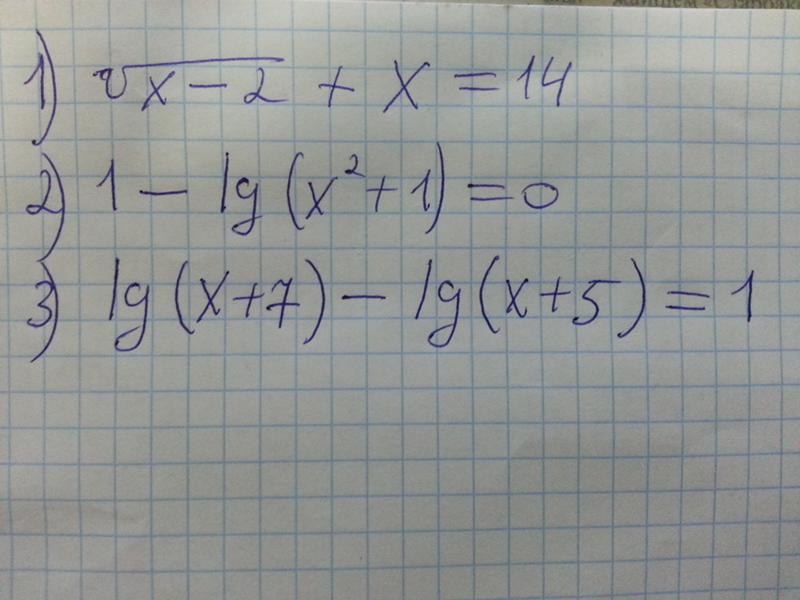 1) √x-2 + x = 14
2) 1 - lg(x²+1) = 0
3) lg(x+7) - lg(x+5) = 1